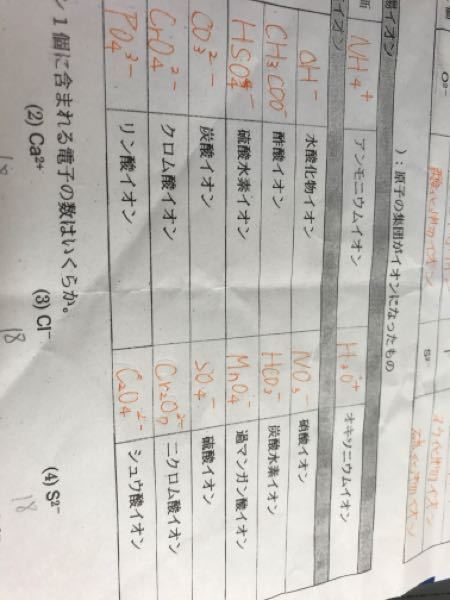 O²⁻ 酸化物イオン S²⁻ 硫化物イオン
)：原子の集団がイオンになったもの
イオン
NH₄⁺ アンモニウムイオン H₃O⁺ オキソニウムイオン
イオン
OH⁻ 水酸化物イオン NO₃⁻ 硝酸イオン
CH₃COO⁻ 酢酸イオン HCO₃⁻ 炭酸水素イオン
HSO₄⁻ 硫酸水素イオン MnO₄⁻ 過マンガン酸イオン
CO₃²⁻ 炭酸イオン SO₄⁻ 硫酸イオン
CrO₄²⁻ クロム酸イオン Cr₂O₇²⁻ 二クロム酸イオン
PO₄³⁻ リン酸イオン C₂O₄²⁻ シュウ酸イオン
ン1個に含まれる電子の数はいくらか。
(2) Ca²⁺ (3) Cl⁻ (4) S²⁻
18 18 18